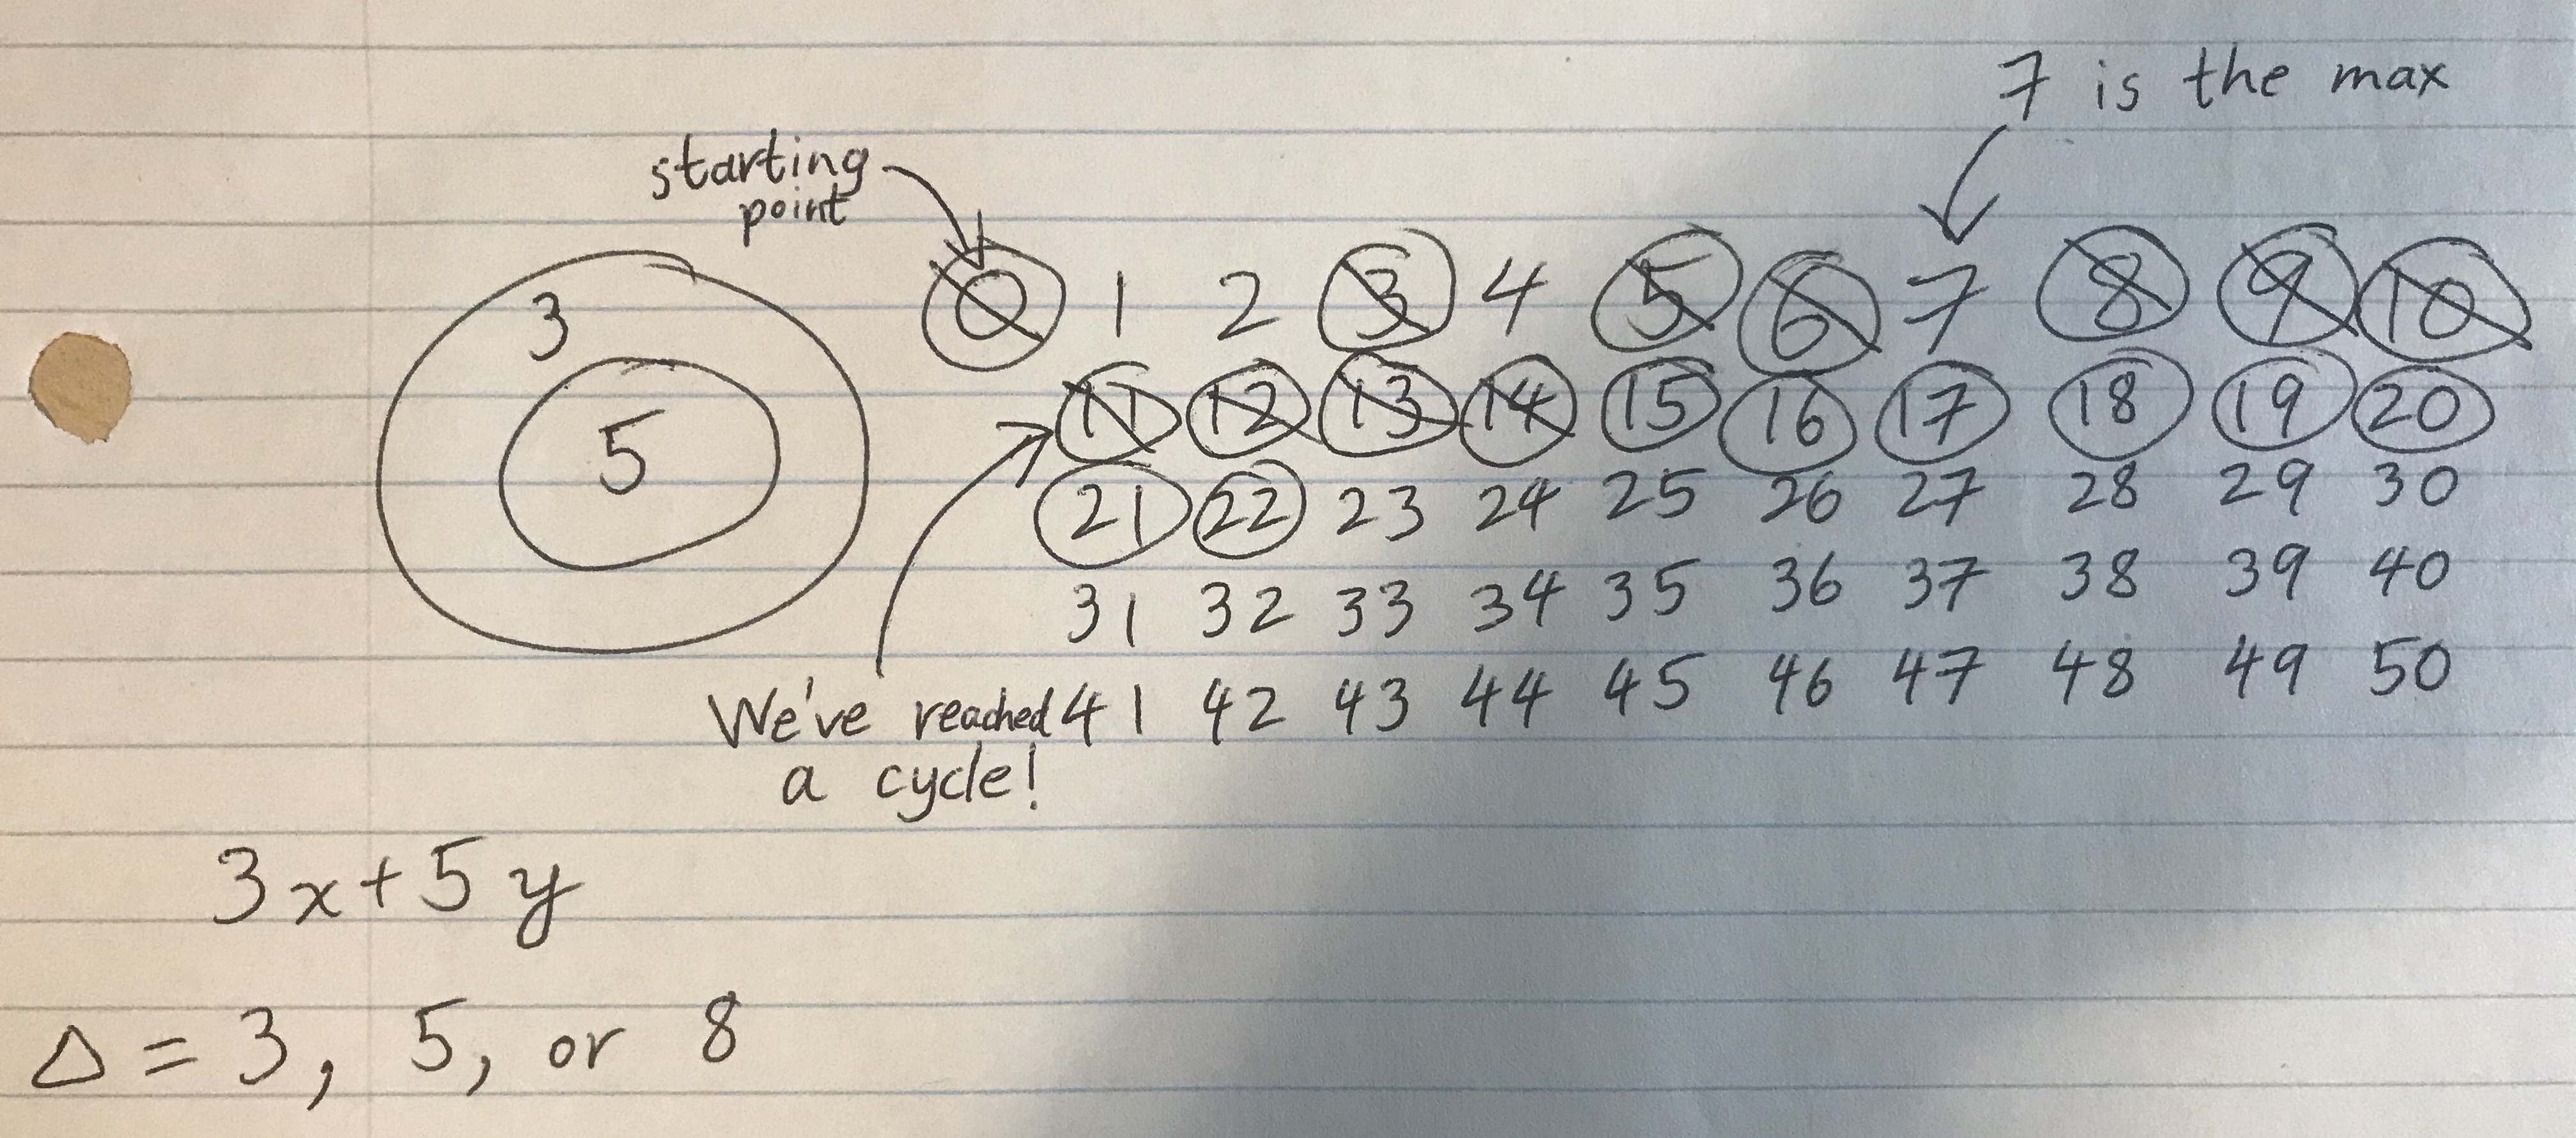 7 is the max
starting
point
3
5
0 1 2 3 4 5 6 7 8 9 10
11 12 13 14 15 16 17 18 19 20
21 22 23 24 25 26 27 28 29 30
31 32 33 34 35 36 37 38 39 40
41 42 43 44 45 46 47 48 49 50
We've reached
a cycle!
3x+5y
Δ = 3, 5, or 8